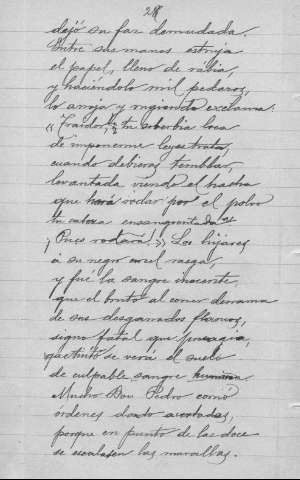 28
dejó su faz demudada.
Entre sus manos estruja
el papel, lleno de rabia,
y haciéndolo mil pedazos,
lo arroja y rugiendo exclama.
«¡Traidor! tu soberbia loca
de imponerme leyes trata,
cuando debieras temblar,
levantada viendo el hacha
que hará rodar por el polvo
tu cabeza ensangrentada
¡Pues rodará!» Los hijares
á su negro corcel rasga,
y fué la sangre inocente,
que el bruto al correr derrama
de sus desgarrados
signo fatal que presagia,
que tinto se verá el suelo
de culpable sangre humana
Mucho Don Pedro corrió
ordenes dando acertadas,
porque en punto de las doce
se escalasen las murallas.